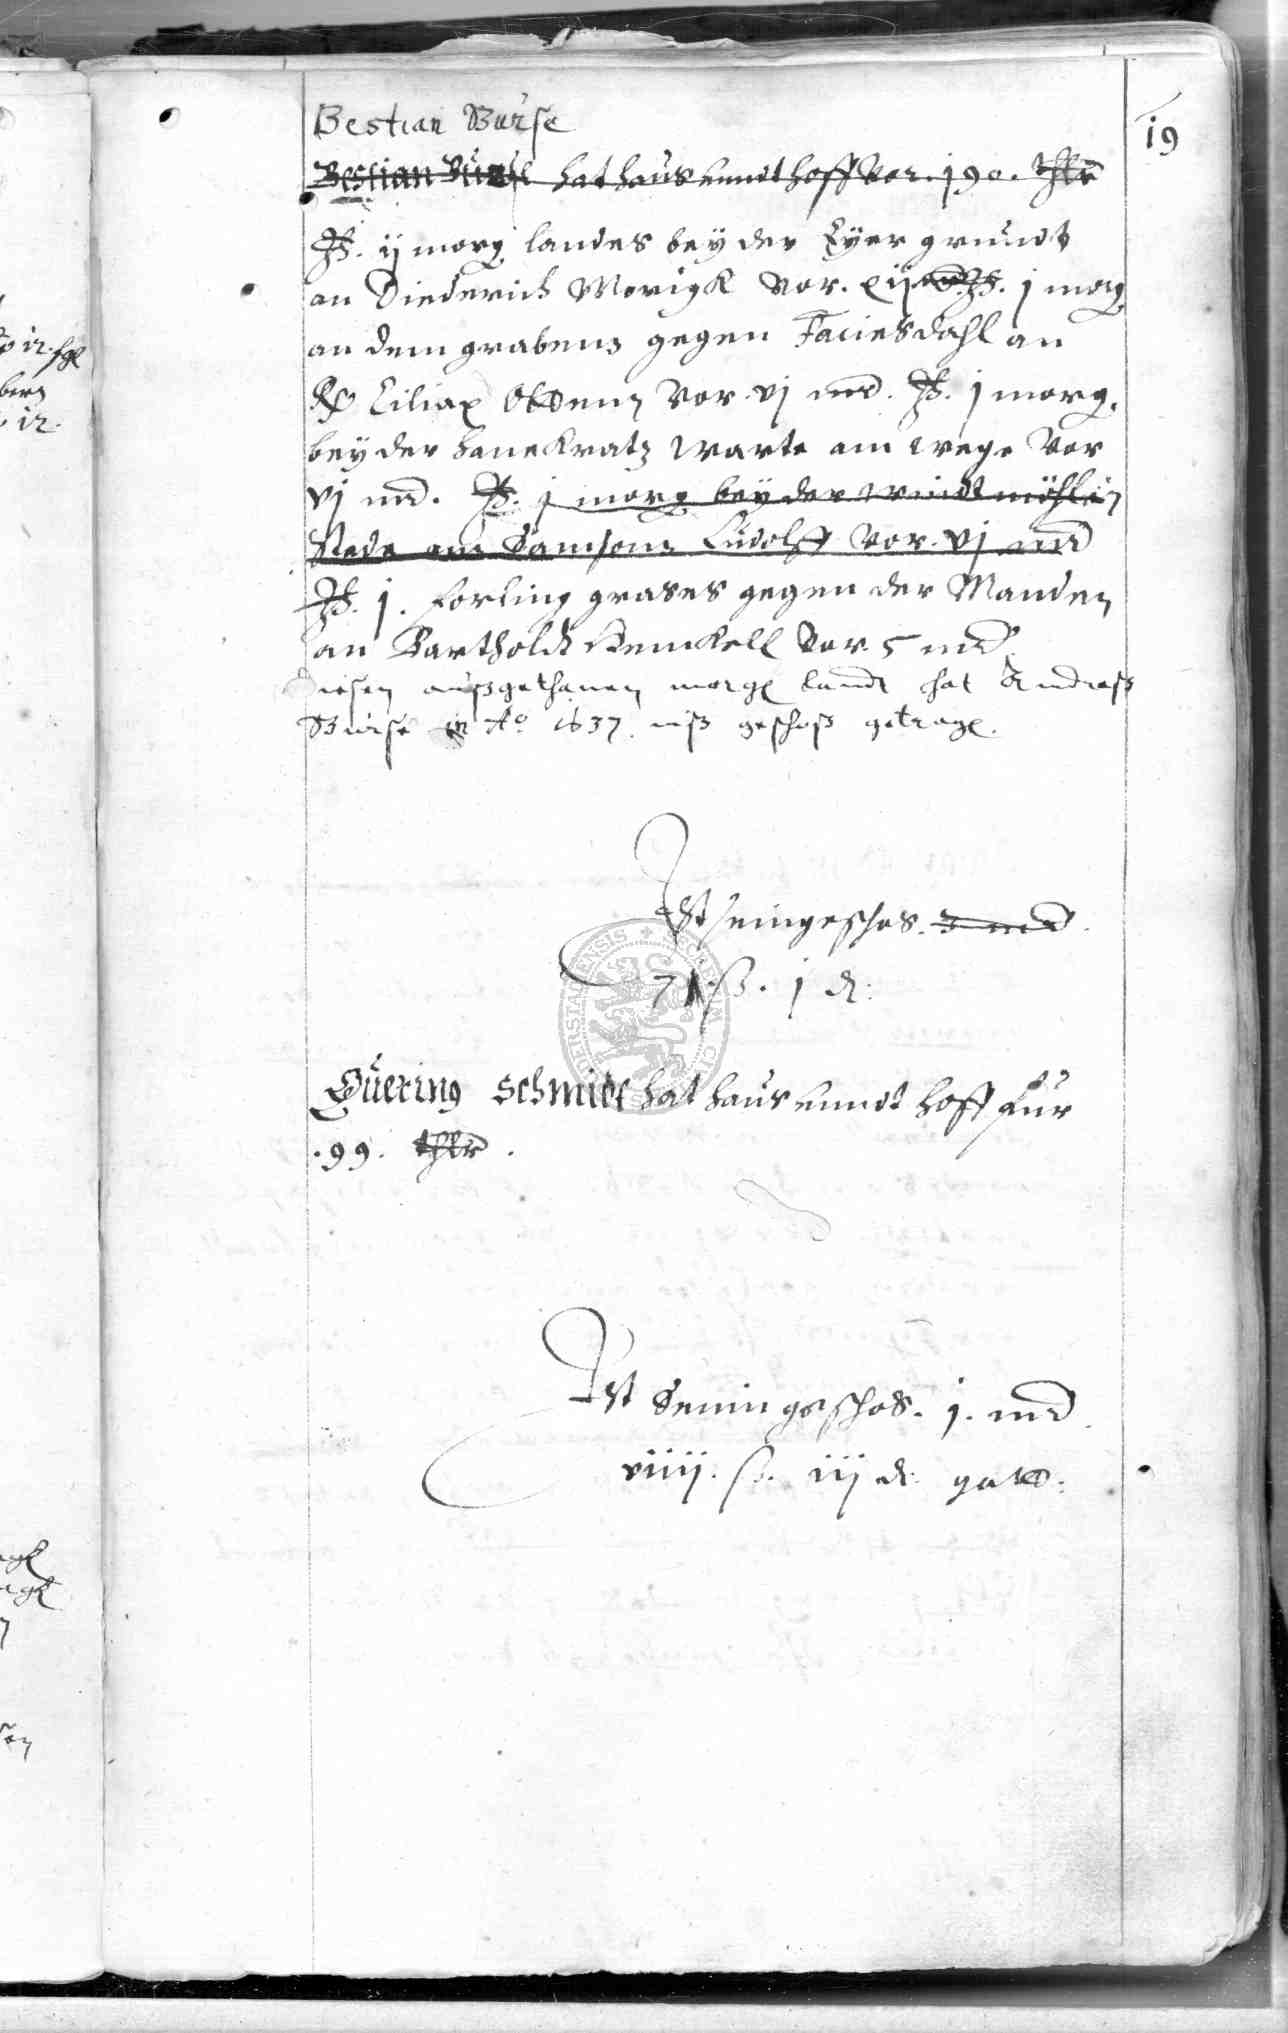 19
Bestian Burse
Bestian Burse hat haus unndt hoff vor. 190. thlr
It. ij morg landes bey der Eyer grundt
an Diederich Morigk vor. xij md. It. j morg
an dem grabenn gegen Faciesdahl an
Ciliax Ottenn vor. vj md. It. j morg.
bey der hanekratz warte am wege vor
vj md. It. j morg bey der windtmöhlen
stede am Samsonn Ludolff vor. vj md
It. j. forling grases gegen der Manden
an Bartholdt Henckell vor. 5 md
Diesen außgethanen morgl landt hat Andreaß
Burse in Ao 1637. geschoß
Ist seingeschos. 3 md.
71. ß. j d.
Querinus Schmidt hat haus unndt hoff fur
.99. thlr.
Ist Seningeschos. j. md.
viiij. ß. iij d.